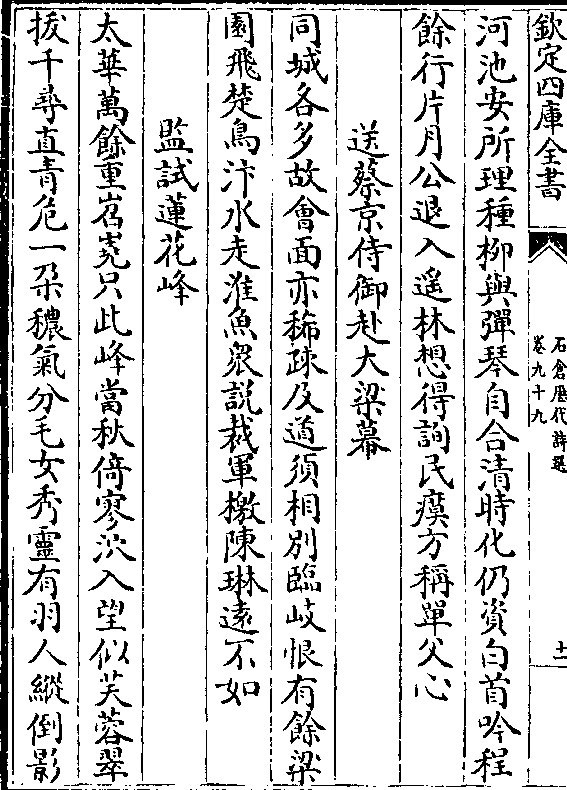 欽定四庫全書
石倉歷代詩選
卷九十九
十一
河池安所理種柳與彈琴自合清時化仍資白首吟程
餘行片月公退入遥林想得詢民瘼方稱單父心
送蔡京侍御赴大梁幕
同城各多故會面亦稀疎及道須相別臨岐恨有餘梁
園飛楚鳥汴水走淮魚衆説裁軍檄陳琳遠不如
監試蓮花峰
太華萬餘重岧嶤只此峰當秋倚寥泬入望似芙蓉翠
拔千尋直青危一朶穠氣分毛女秀靈有羽人縱倒影